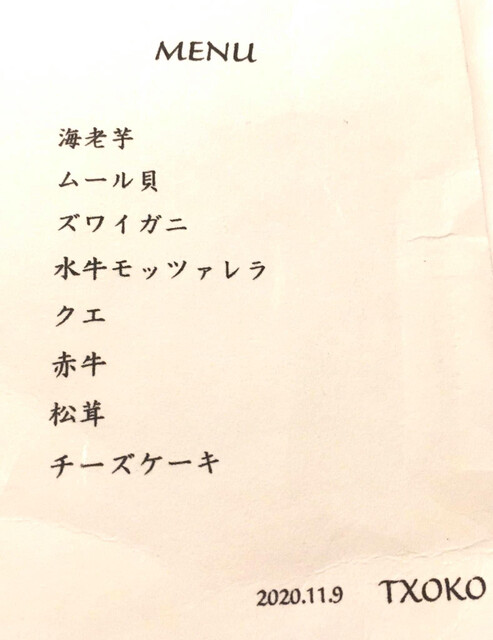 MENU
海老芋
ムール貝
ズワイガニ
水牛モッツァレラ
クエ
赤牛
松茸
チーズケーキ
2020.11.9 TXOKO